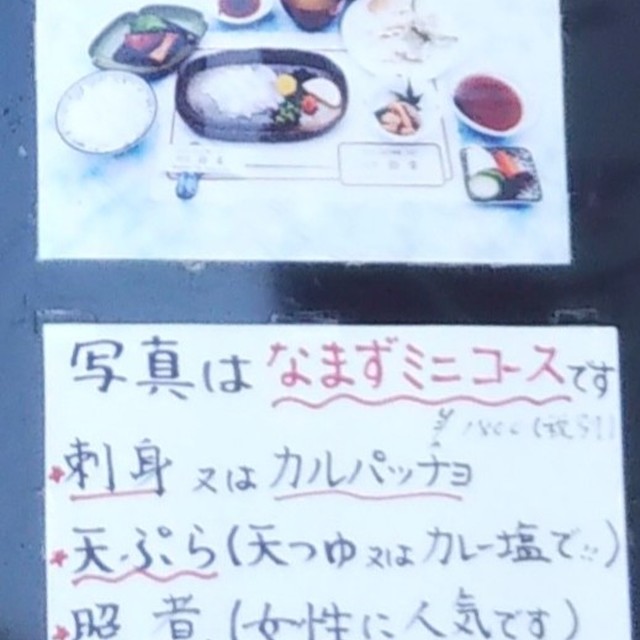 写真はなまずミニコースです
*刺身又はカルパッチョ
*天ぷら(天つゆ又はカレー塩で!!)
*照煮(女性に人気です)